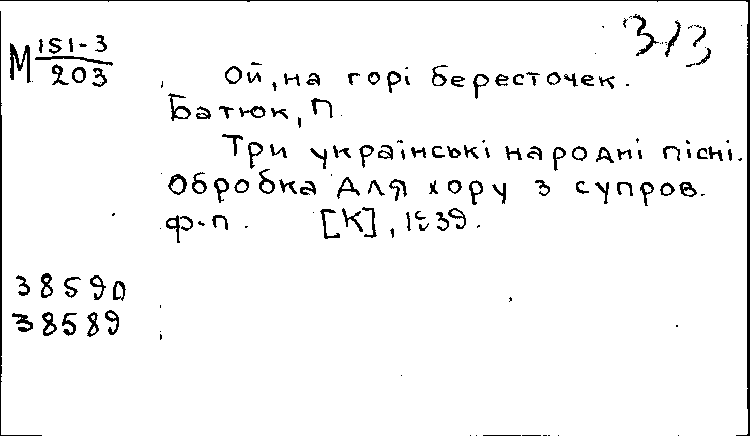 3/3
М 151-3
203
Ой, на горі бересточек.
Батюк, П.
Три українські народні пісні.
Обробка для хору з супров.
ф-п. [К], 1939.
38590
38589